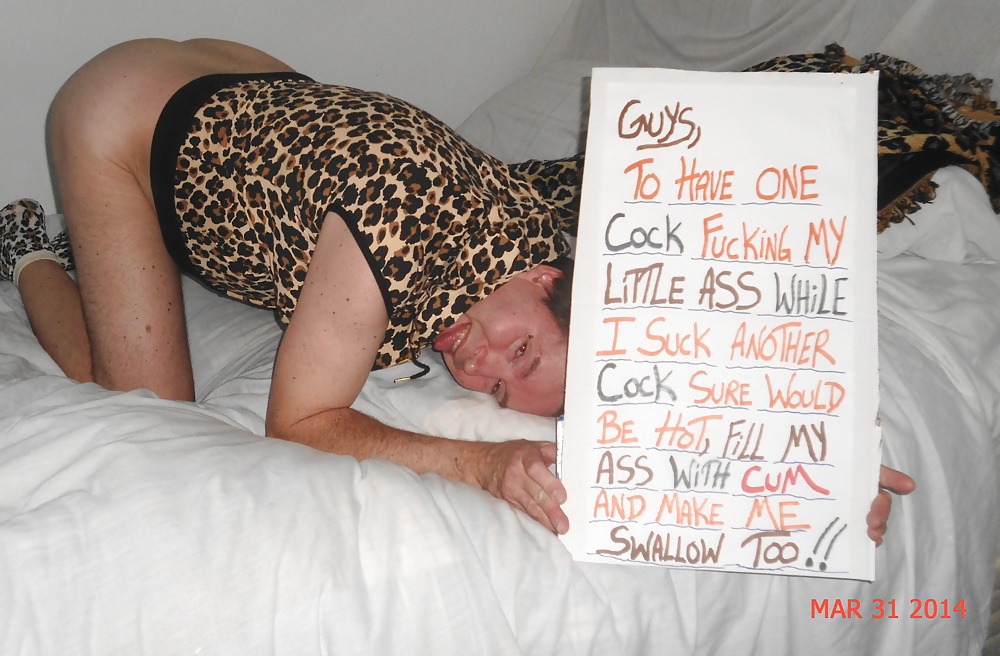 GUYS,
TO HAVE ONE
COCK FUCKING MY
LITTLE ASS WHILE
I SUCK ANOTHER
COCK SURE WOULD
BE HOT, FILL MY
ASS WITH CUM
AND MAKE ME
SWALLOW TOO!!
MAR 31 2014